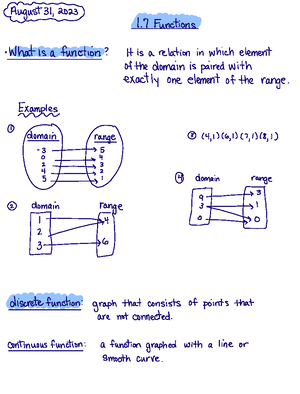 August 31, 2023
1.7 Functions
• What is a function? It is a relation in which element
of the domain is paired with
exactly one element of the range.
Examples
① domain range
-3 5
0 4
2 3
4 2
5 1
③ (4,1)(6,1)(7,1)(8,1)
④ domain range
9 3
3 1
0 0
② domain range
1 4
2
3 6
discrete function: graph that consists of points that
are not connected.
continuous function: a function graphed with a line or
smooth curve.